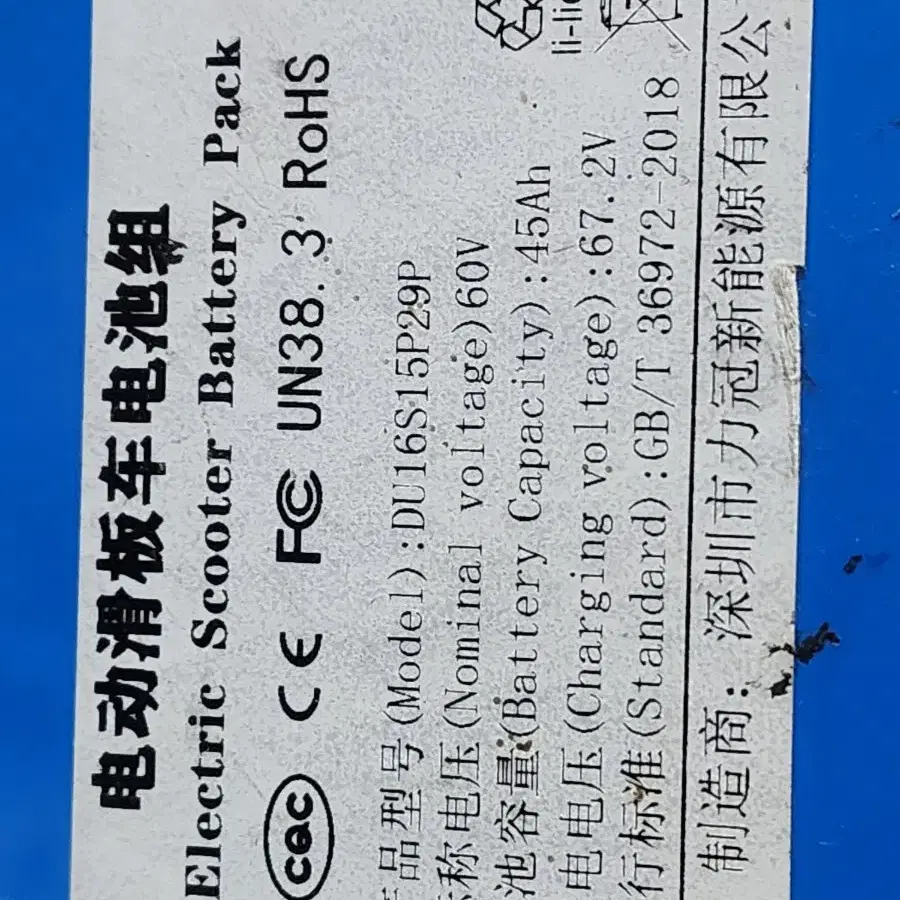 电动滑板车电池组
Electric Scooter Battery Pack
CQC CE FC UN38.3 RoHS
品型号(Model):DU16S15P29P
称电压(Nominal voltage)60V
池容量(Battery Capacity):45Ah
电电压(Charging voltage):67.2V
行标准(Standard):GB/T 36972-2018
制造商: 深圳市力冠新能源有限公
li-io